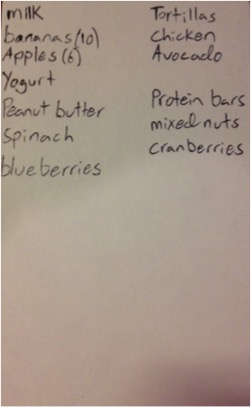 milk
bananas (10)
Apples (6)
Yogurt
Peanut butter
Spinach
blueberries
Tortillas
chicken
Avocado
Protein bars
mixed nuts
cranberries